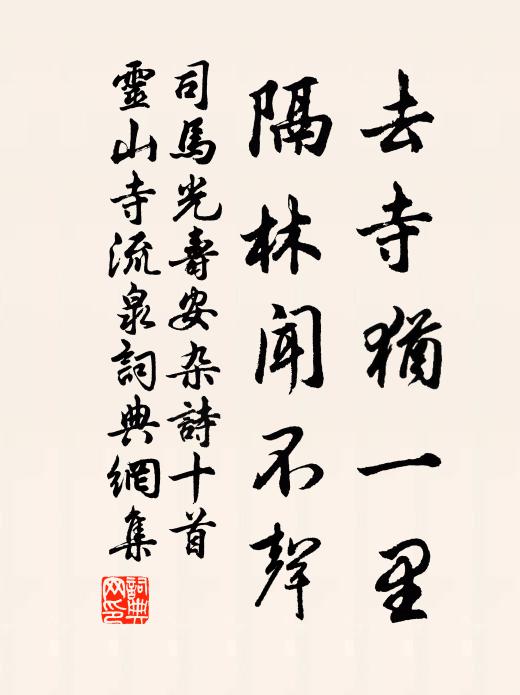 去寺猶一里
隔林聞不聲
司馬光壽安杂詩十首
靈山寺流泉詞典網集
詞典网印